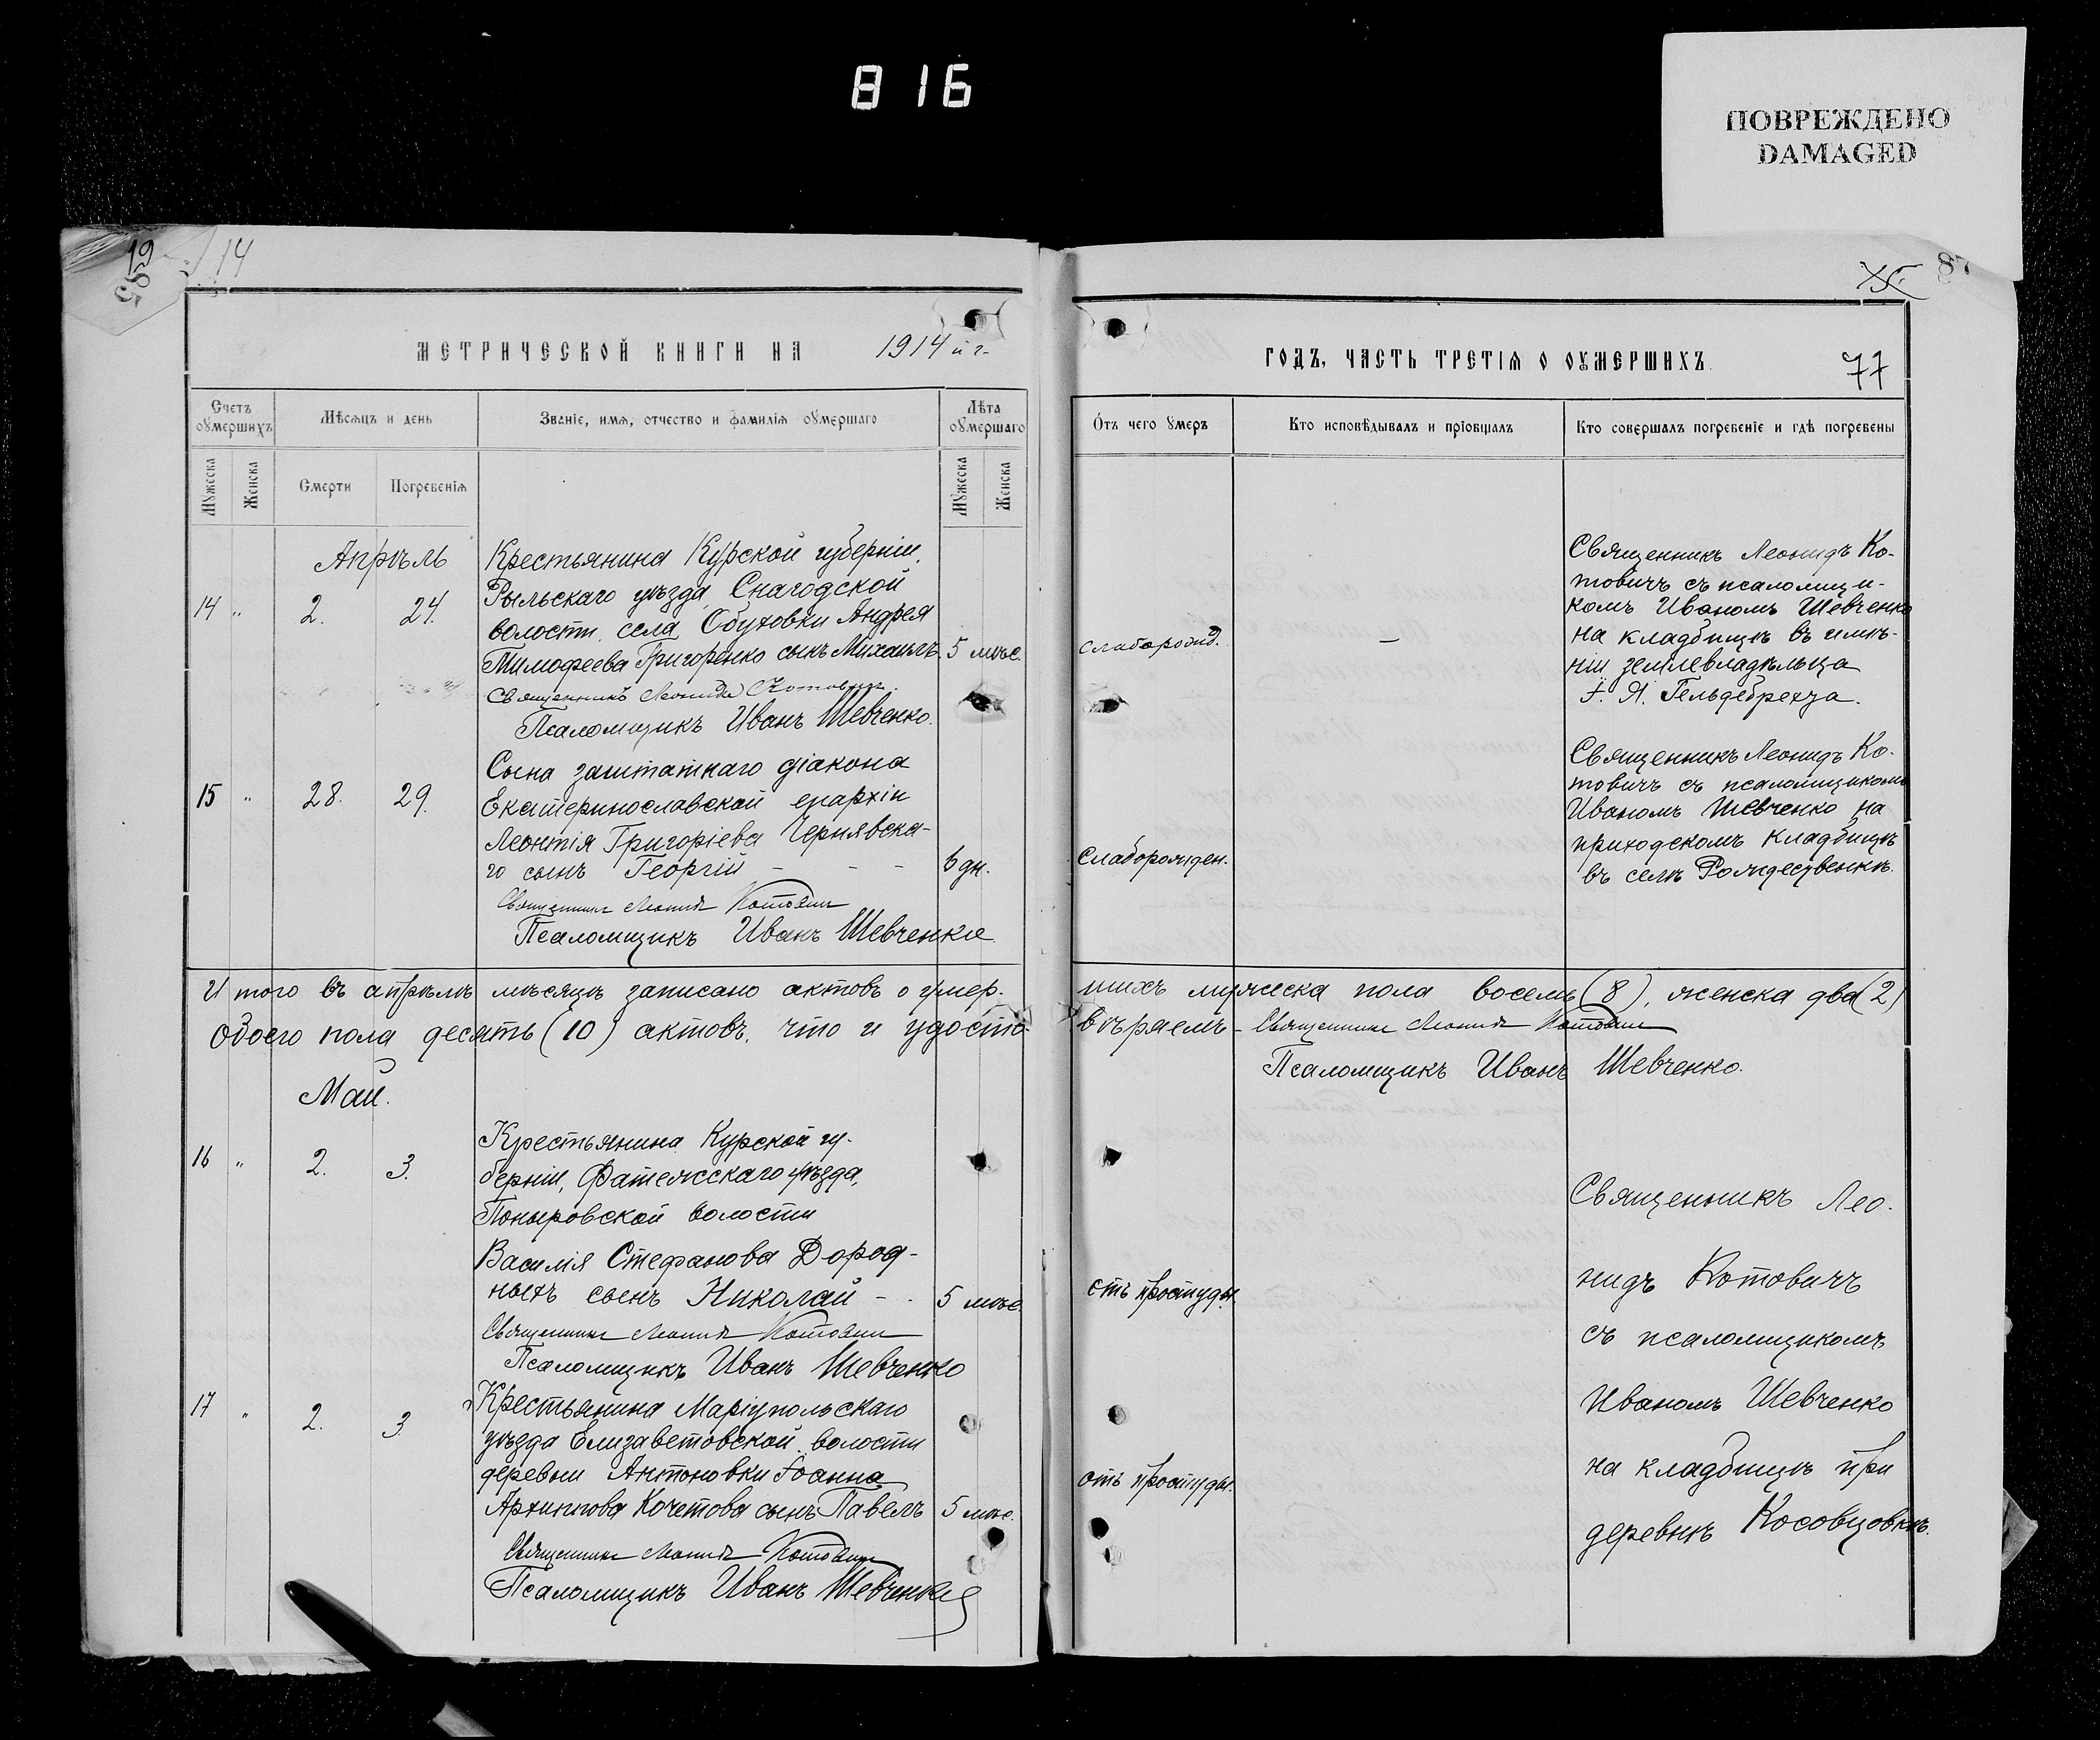 816
ПОВРЕЖДЕНО
DAMAGED
1914
85
87
МЕТРИЧЕСКОЙ КНИГИ НА 1914 й г.
ГОДЪ, ЧАСТЬ ТРЕТІѦ О ОУМЕРШИХЪ.
77
Счетъ оумершихъ
Мѣсѧцъ и день
Званіе, имѧ, отчество и фамиліѧ оумершаго
Лѣта оумершаго
Отъ чего умеръ
Кто исповѣдывалъ и пріобщалъ
Кто совершалъ погребеніе и гдѣ погребены
Мужеска
Женска
Смерти
Погребеніѧ
Мужеска
Женска
Апрѣль
14 " 2. 24.
Крестьянина Курской губерніи,
Рыльскаго уѣзда, Снагодской
волости, села Обуховки Андрея
Тимофеева Григоренко сынъ Михаилъ 5 мѣс.
Священникъ Леонидъ Котовичъ.
Псаломщикъ Иванъ Шевченко.
слаборожд.
—
Священникъ Леонидъ Ко-
товичъ съ псаломщи-
комъ Иваномъ Шевченко
на кладбищѣ въ имѣ-
ніи землевладѣльца
І. Я. Гельдебрехта.
15 " 28. 29.
Сына заштатнаго діакона
Екатеринославской епархіи
Леонтія Григоріева Чернявска-
го сынъ Георгій - - - 6 дн.
Священникъ Леонидъ Котовичъ
Псаломщикъ Иванъ Шевченко
Слаборожден.
Священникъ Леонидъ Ко-
товичъ съ псаломщикомъ
Иваномъ Шевченко на
приходскомъ кладбищѣ
въ селѣ Рождественкѣ.
Итого въ апрѣлѣ мѣсяцѣ записано актовъ о умер-
шихъ мужеска пола восемь (8), женска два (2)
Обоего пола десять (10) актовъ, что и удосто-
вѣряемъ - Священникъ Леонидъ Котовичъ
Псаломщикъ Иванъ Шевченко.
Май.
16 " 2. 3.
Крестьянина Курской гу-
берніи, Фатежсскаго уѣзда,
Поныровской волости
Василія Стефанова Дород-
ныхъ сынъ Николай - - 5 мѣс.
Священникъ Леонидъ Котовичъ
Псаломщикъ Иванъ Шевченко
отъ простуды.
17 " 2. 3
Крестьянина Маріупольскаго
уѣзда Елизаветовской волости
деревни Антоновки Іоанна
Архипова Кочетова сынъ Павелъ 5 мѣс.
Священникъ Леонидъ Котовичъ
Псаломщикъ Иванъ Шевченко
отъ простуды.
Священникъ Лео-
нидъ Котовичъ
съ псаломщикомъ
Иваномъ Шевченко
на кладбищѣ при
деревнѣ Косовцовкѣ.